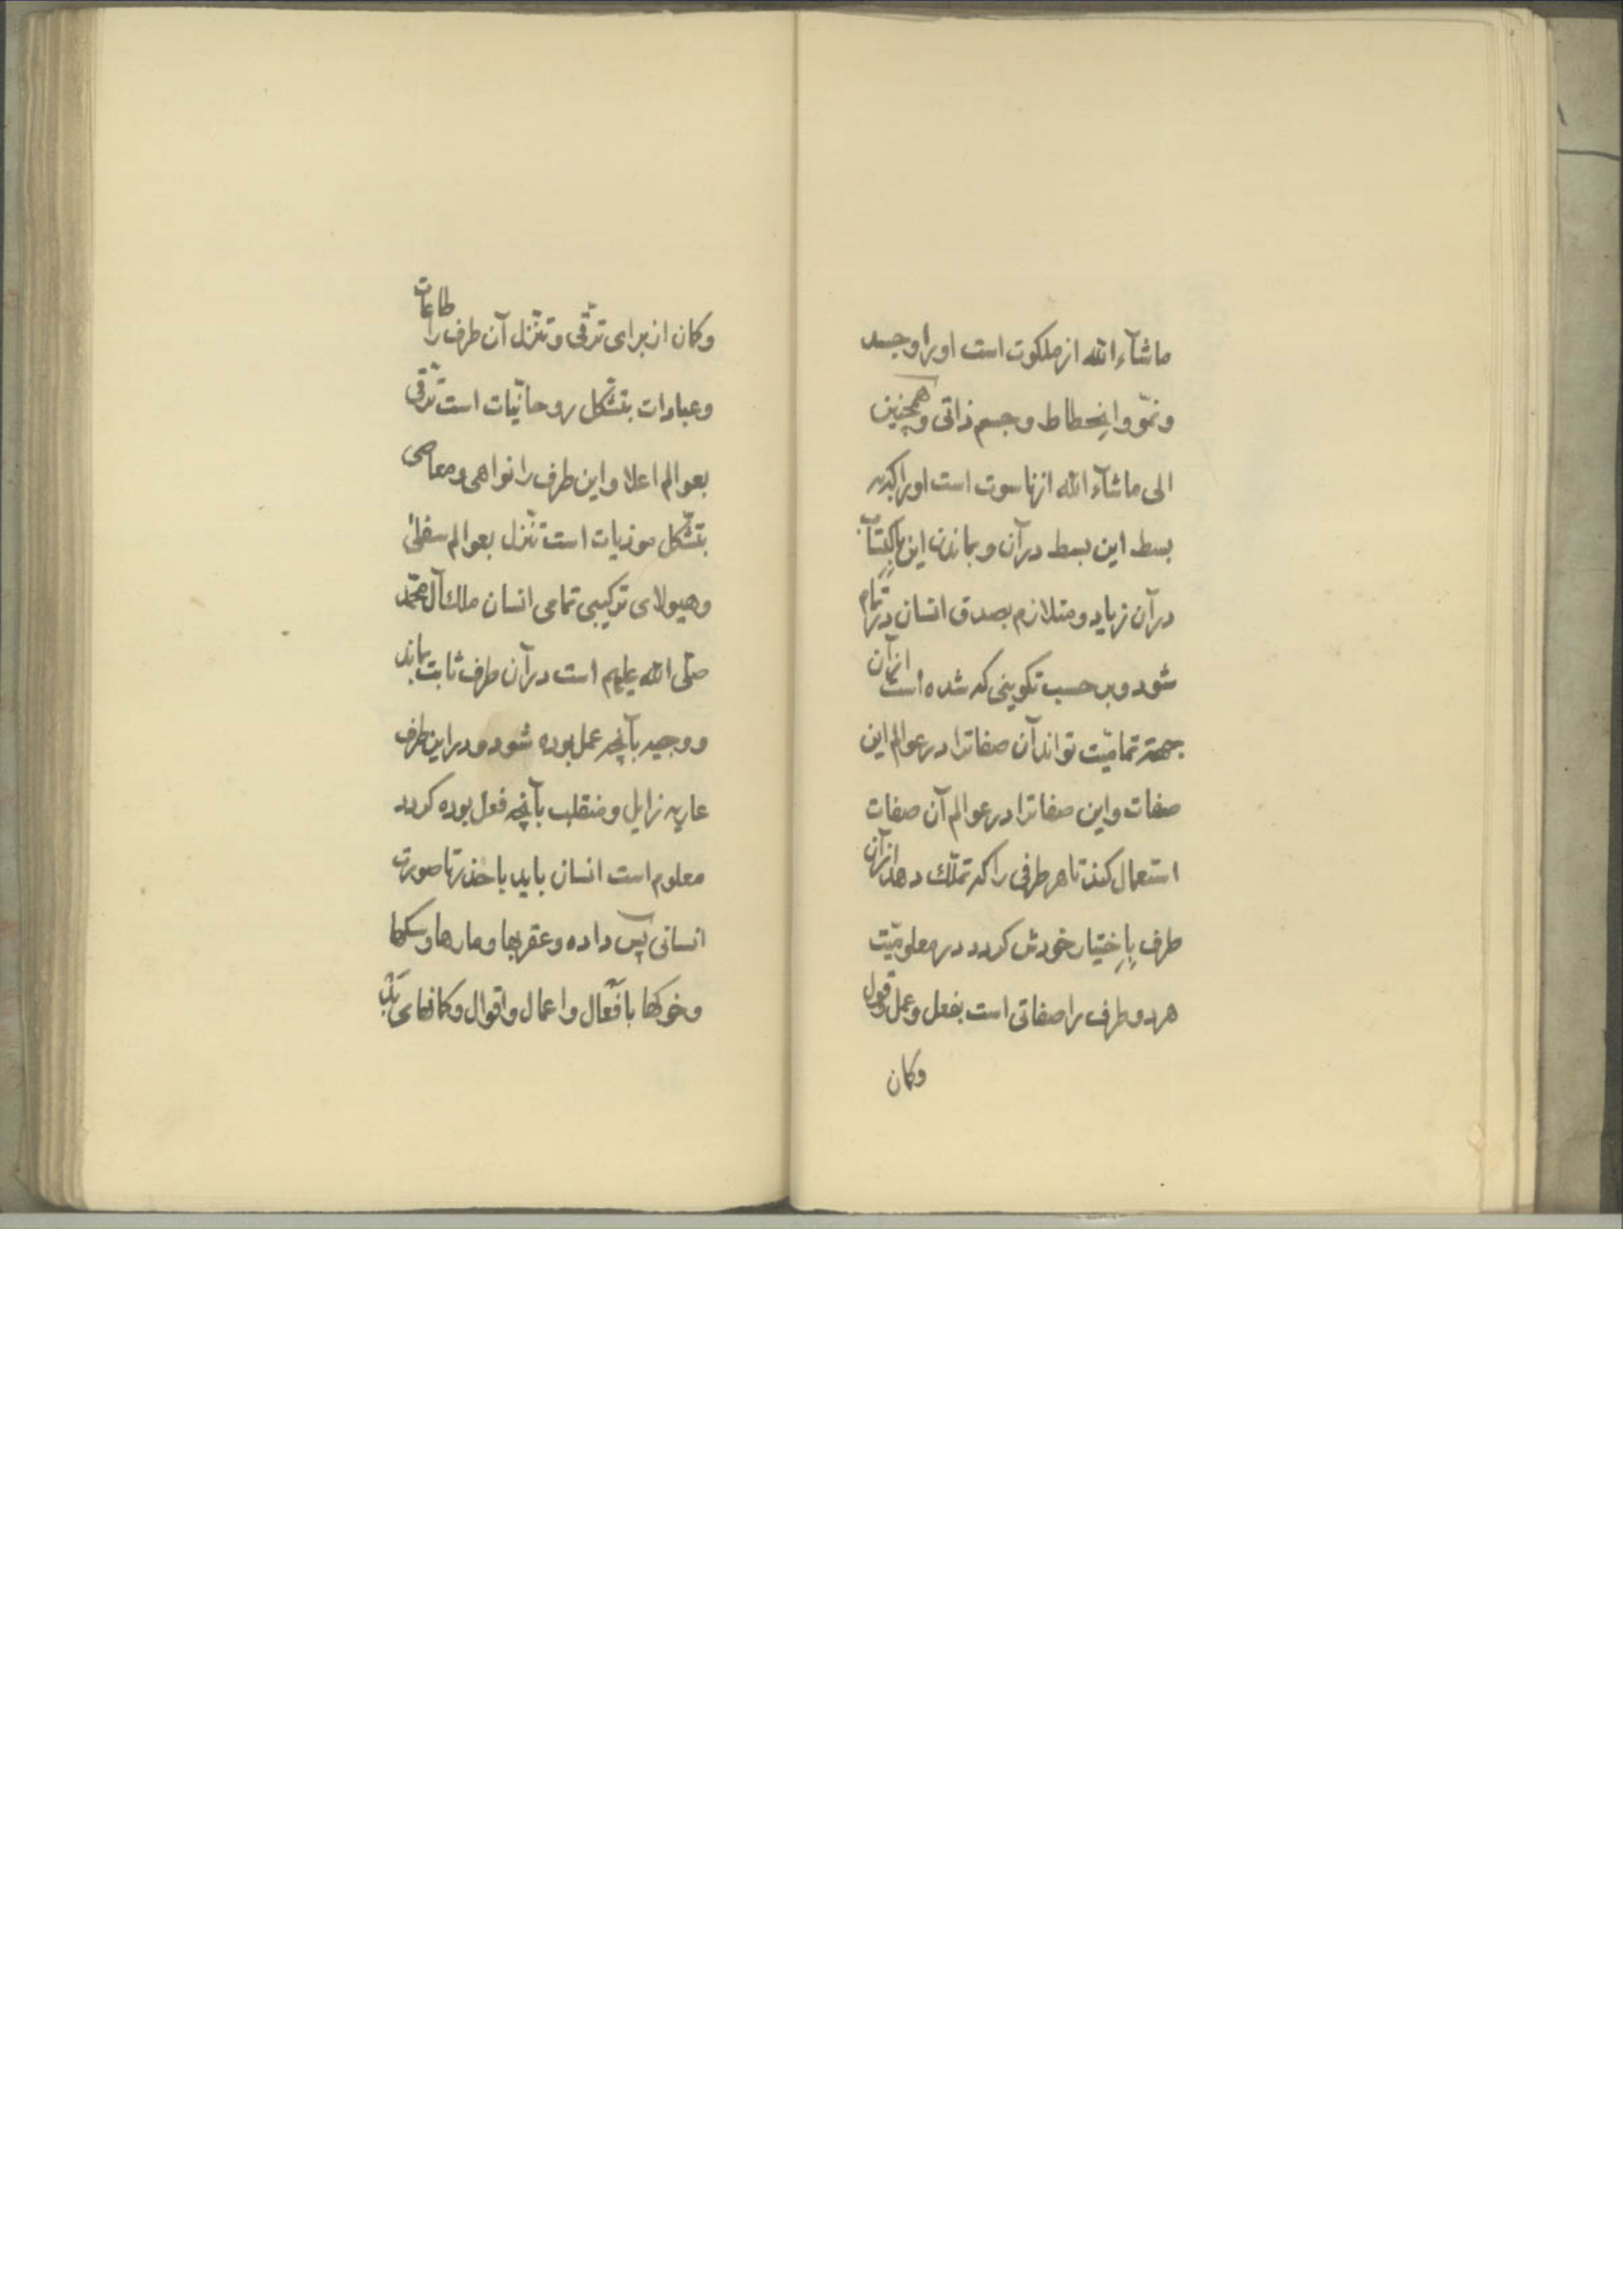 ماشآء الله از ملکوت است او را و جسد
و نموّ و اِنحطاط و جسم ذاتی و همچنین
الی ماشآء الله از ناسوت است او را که در
بسط این بسط در آن و بماندن این باِکتِسٰاب
در آن زیاد و متلازم بصدق انسان در تمام
شود و بر حسب تکوینی که شده است از آن
جهتر تمامیّت تواند آن صفاترا در عوالم این
صفات و این صفاترا در عوالم آن صفات
استعمال کند تا هر طرفی را که تملّک دهد از آن
طرف بِاِختیار خودش کردد در معلومیّت
هر دو طرف را صفاتی است بفعل و عمل و قول
و کان
و کان از برای ترقّی و تنزّل آن طرف را طاعات
و عبادات بتشکّل روحانیّات است ترقّی
بعوالم اعلا و این طرف را نواهی و معاصی
بتشکّل موذیات است تنزّل بعوالم سفلیٰ
و هیولای ترکیبی تمامی انسان ملک آل محمّد
صلّی الله علیهم است در آن طرف ثابت بماند
و وجیه بآنچه عمل بوده شود و در این طرف
عاریه زایل و منقلب بآنچه فعل بوده کردد
معلوم است انسان باید با حذر تا صورت
انسانی پس داده و عقربها و مارها و سکها
و خوکها بافعال و اعمال و اقوال و کانهای بَد